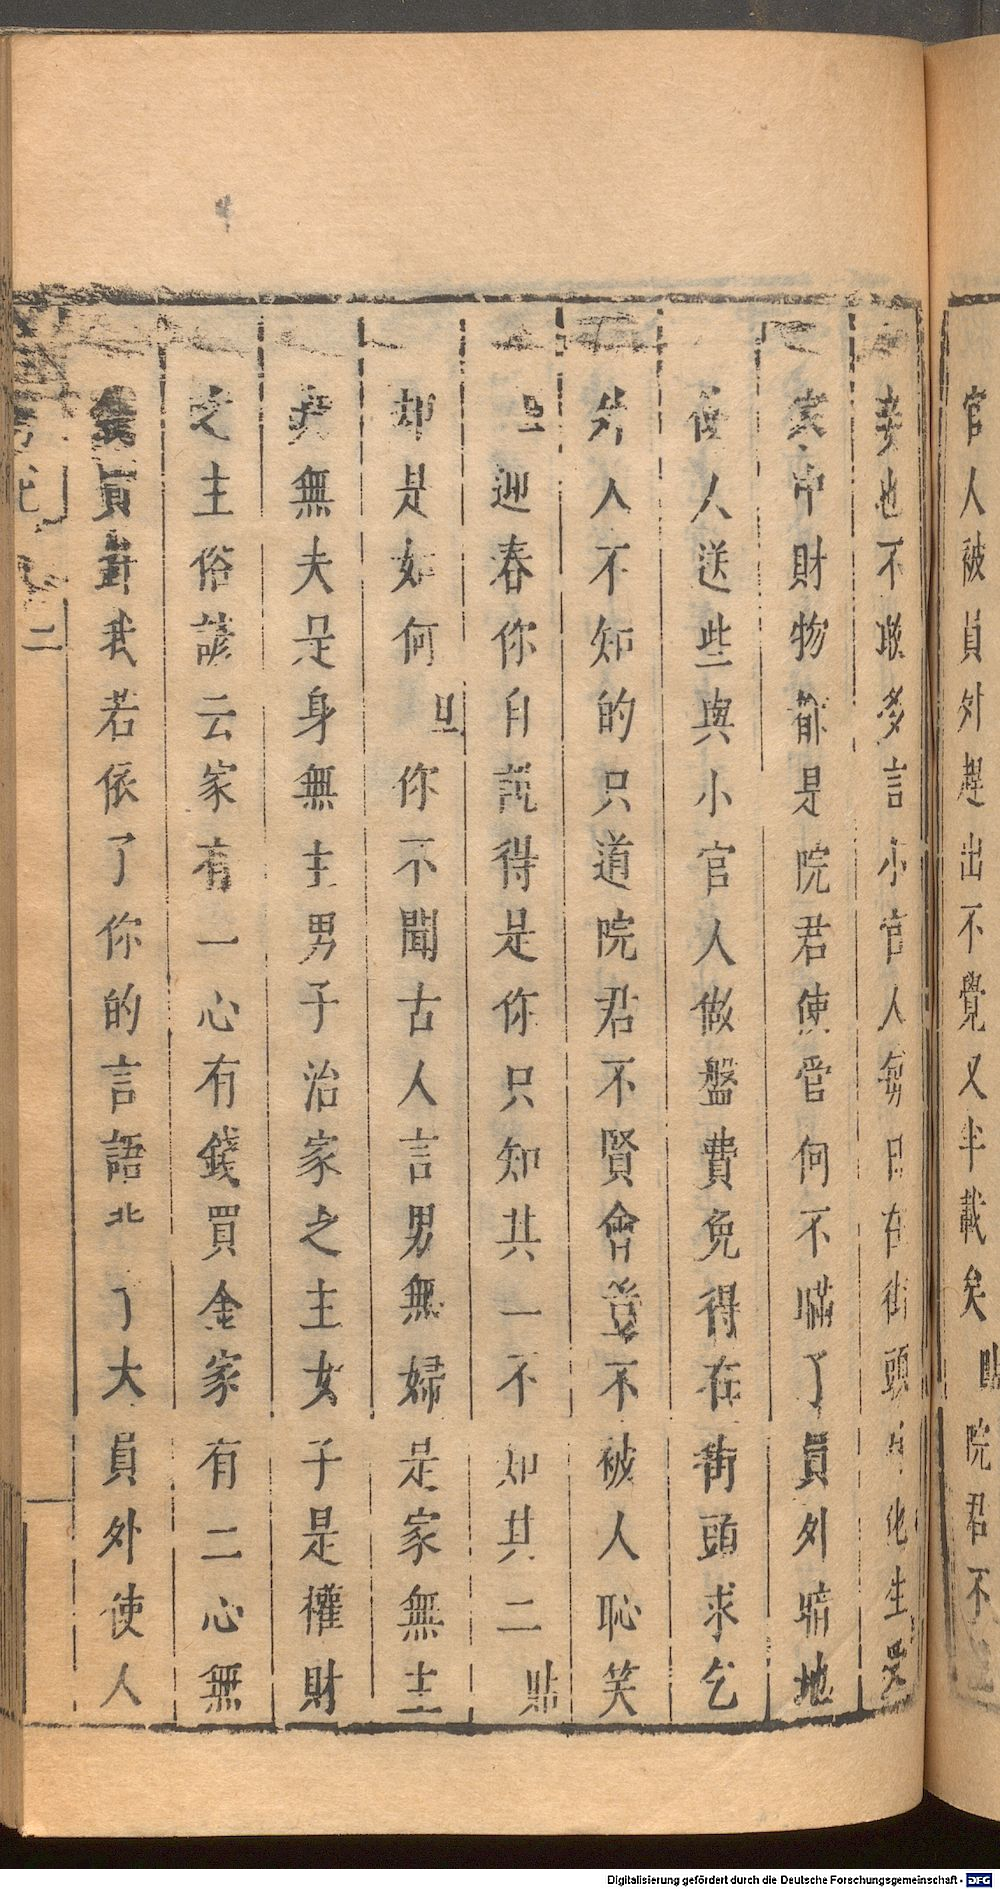 官人被員外趕出不覺又半載矣貼院君不
妾也不敢多言小官人每日在街頭化生受
家中財物都是院君使管何不瞞了員外暗地
使人送些與小官人做盤費免得在街頭求乞
外人不知的只道院君不賢會豈不被人恥笑
旦迎春你自說得是你只知其一不知其二貼
却是如何旦你不聞古人言男無婦是家無主
婦無夫是身無主男子治家之主女子是權財
之主俗諺云家有一心有錢買金家有二心無
錢買我若依了你的言語了大員外使人
二
Digitalisierung gefördert durch die Deutsche Forschungsgemeinschaft - DFG